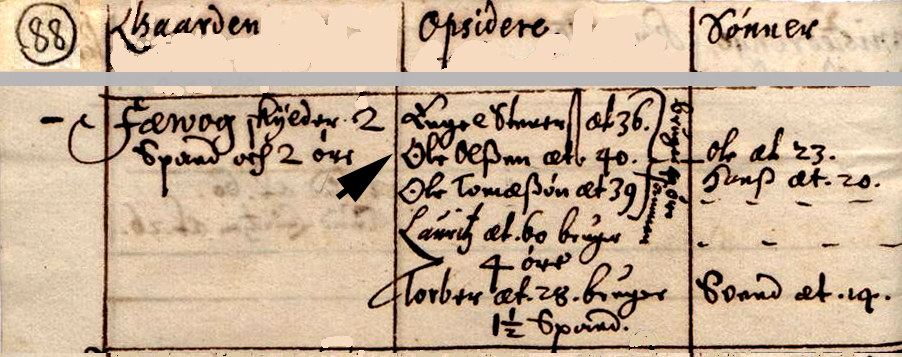 88 Gaarden Opsidere. Sønner
Fæwog skylder 2
Spand och 2 øre
Engel Steners æt 36.
Ole Olßøn æt. 40.
Ole Tomæßøn æt 39
bruger 4 øre
Lauritz æt. 60 bruger
4 øre
Torber æt. 28. bruger
1½ Spand.
Ole æt 23.
Hanß æt. 20.
- - -
- - -
Svend æt. 14.